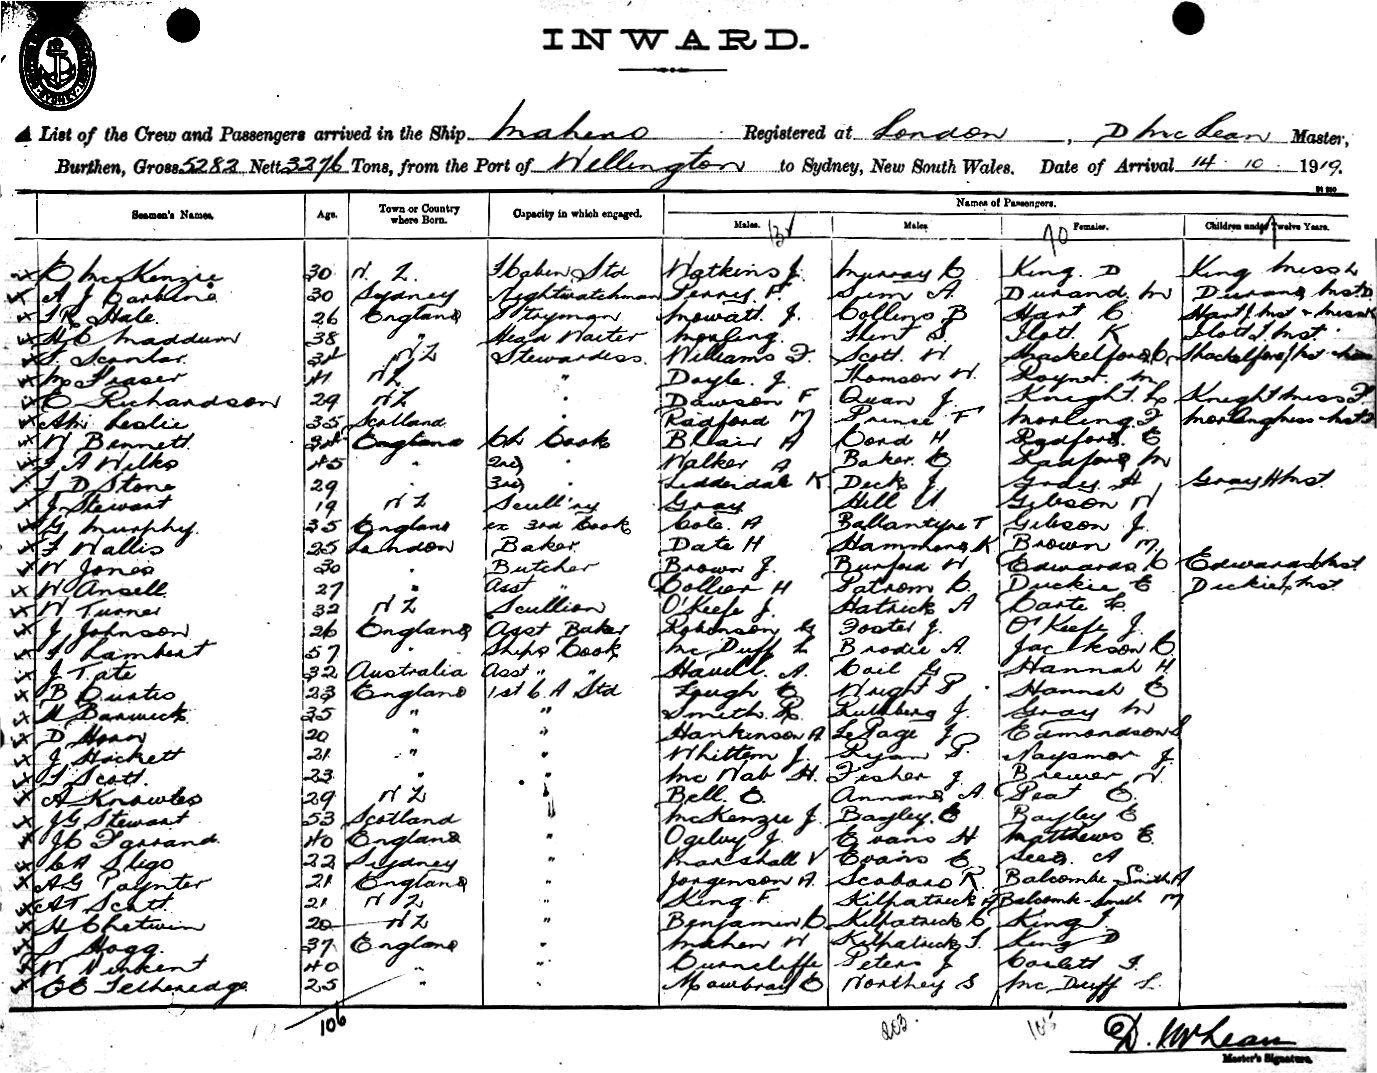 INWARD.
List of the Crew and Passengers arrived in the Ship Maheno Registered at London, D McLean Master,
Burthen, Gross 5282 Nett 3276 Tons, from the Port of Wellington to Sydney, New South Wales. Date of Arrival 14 10 1919.
Names of Passengers.
Seamen's Names. Age. Town or Country where Born. Capacity in which engaged. Males. Males. Females. Children under Twelve Years.
McKenzie 30 N Z. Std Watkins J. Murray King. D King Miss
A J 30 Sydney Nightwatchman Perry F. Sim A. Durand M Durand Mstr
Hale. 26 England Mowatt. J. Collins B Hart C. Hart
Maddum 38 " Head Waiter Morling. Flint S. Ilott. K Ilott Mst.
Scanlar. N Z Stewardess. Williams F. Scott. W Shackelford Shackelford
M Fraser 41 N Z " Doyle. J. Thomson W. Rayner. M
C Richardson 29 N Z " Dawson F Quan J. Knight. L Knight Miss
Leslie 35 Scotland " Radford M Prince F Morling. F Morling
W Bennett. England Ch Cook Blair A Cord H Radford. E
F A Wilks 45 " 2nd " Walker A Baker. E Radford M
D Stone 29 " 3rd " Liddendale K. Deck J. Gray H Gray H Mst.
J. Stewart 19 N Z Scull'ry Gray Hill Gibson N
G. Murphy. 35 England ex 3rd Cook Cole. A Ballantyne T Gibson J.
F Wallis 25 London Baker. Date H Hammond K Brown M.
W Jones 30 " Butcher Brown J. Burford W Edwards Edwards Mst
W Ansell. 27 " Asst " Collier H Patrom Duckie E Duckie Mst
W Turner 32 N Z Scullion O'Keefe J. Hatrick A
J. Johnson 26 England Asst Baker Robinson G Foster J. O'Keefe J.
Lambert 57 " Ships Cook McDuff L Brodie A. Jackson
J Tate 32 Australia Asst " " Havell. A. Coil G Hannah H
B Curtis 23 England 1st C A Std Lough Wright P. Hannah E
Barwick 35 " " Smith R. Rathberg J. Gray M
D Horn 20 " " Hankinson A. LePage J. Edmondson
J Hackett 21 " " Whittem J. Ryan P. Naysmor J.
Scott. 23 " " McNab H. Fisher J. Brewer N.
A Knowles 29 N Z " Bell. E. Annand A. Peat E.
J G Stewart 53 Scotland " McKenzie J. Bayley. E Bayley E
J C Farrand. 40 England " Ogilvy J. Evans H Matthews E.
C A Sligo 22 Sydney " Marshall V Evans E. Seed. A
A G Paynter 21 England " Jorgenson A. Scaboro R. Balcombe-Smith A
A T Scott 21 N Z " King. F Kilpatrick Balcombe-Smith M
H Chetwin 20 N Z " Benjamin Kilpatrick King J.
S Hogg. 37 England " Mahen W Kilpatrick King D
W Vinkent 40 " " Curncliffe Peters J Corlett J.
Fetheredge 25 " " Mowbray E Northey S McDuff L.
106 203. 105
D. McLean
Master's Signature.